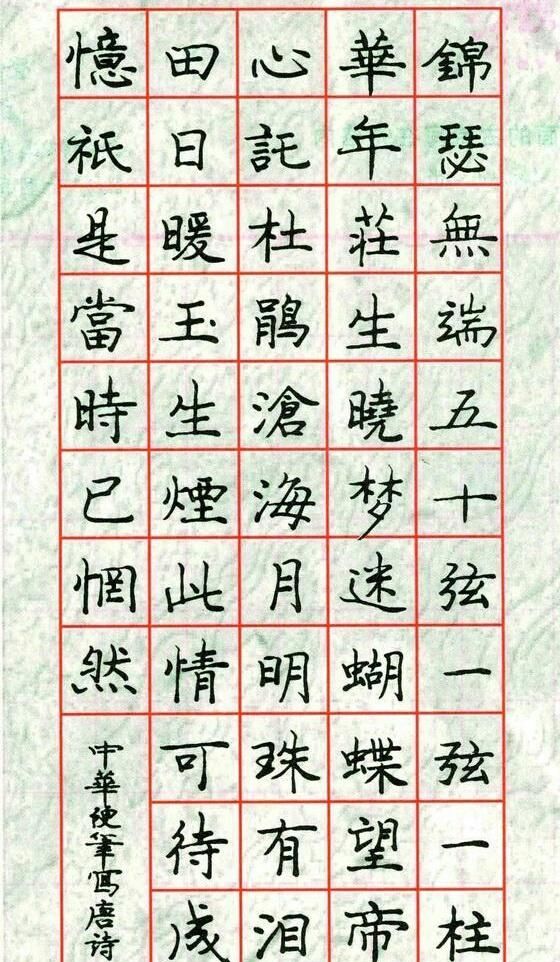 錦瑟無端五十弦一弦一柱
華年莊生曉梦迷蝴蝶望帝
心託杜鵑滄海月明珠有泪
田日暖玉生煙此情可待成
憶祇是當時已惘然
中華硬筆寫唐詩